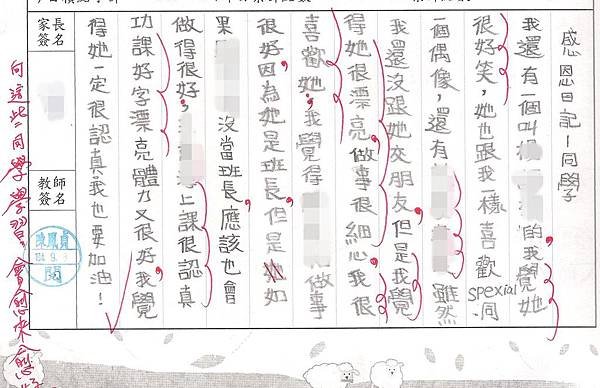 感恩日記—同學
我還有一個叫 的我覺她
很好笑,她也跟我一樣喜歡 spexial.同
一個偶像,還有 雖然
我還沒跟她交朋友,但是我覺
得她很漂亮,做事很細心,我很
喜歡她,我覺得 做事
很好,因為她是班長,但是如
果 沒當班長,應該也會
做得很好, 上課很認真
功課好字漂亮體力又很好,我覺
得她一定很認真我也要加油!
家長簽名
教師簽名
陳鳳貞
104.9.
閱
向這些同學學習,會愈來愈好